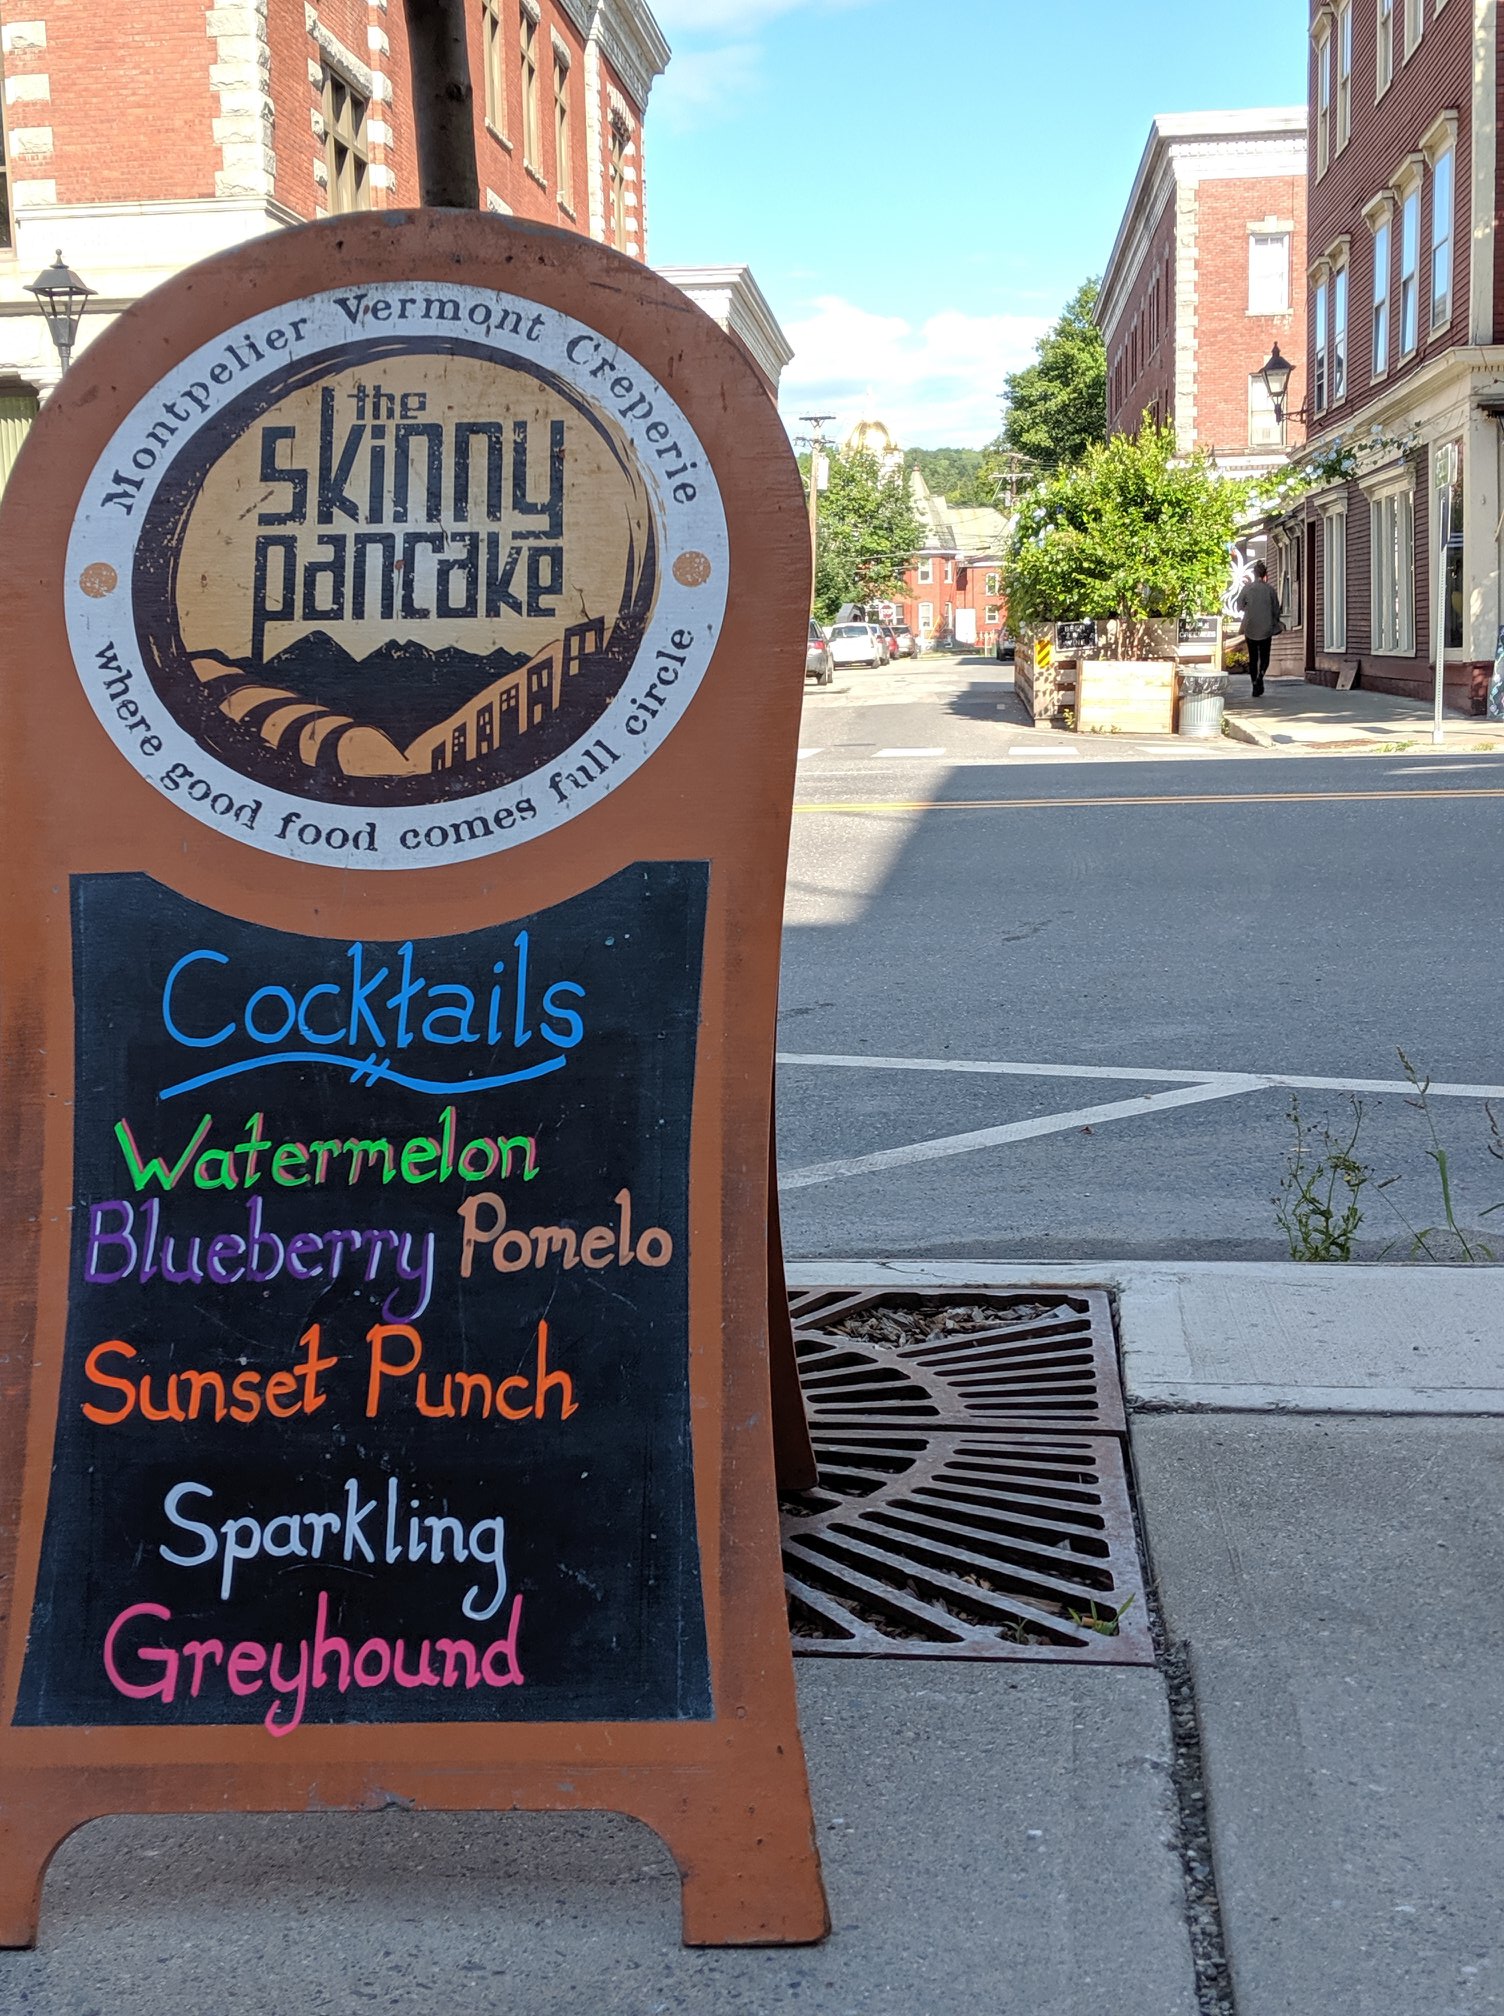 Montpelier Vermont Creperie
the
skinny
pancake
where good food comes full circle
Cocktails
Watermelon
Blueberry Pomelo
Sunset Punch
Sparkling
Greyhound